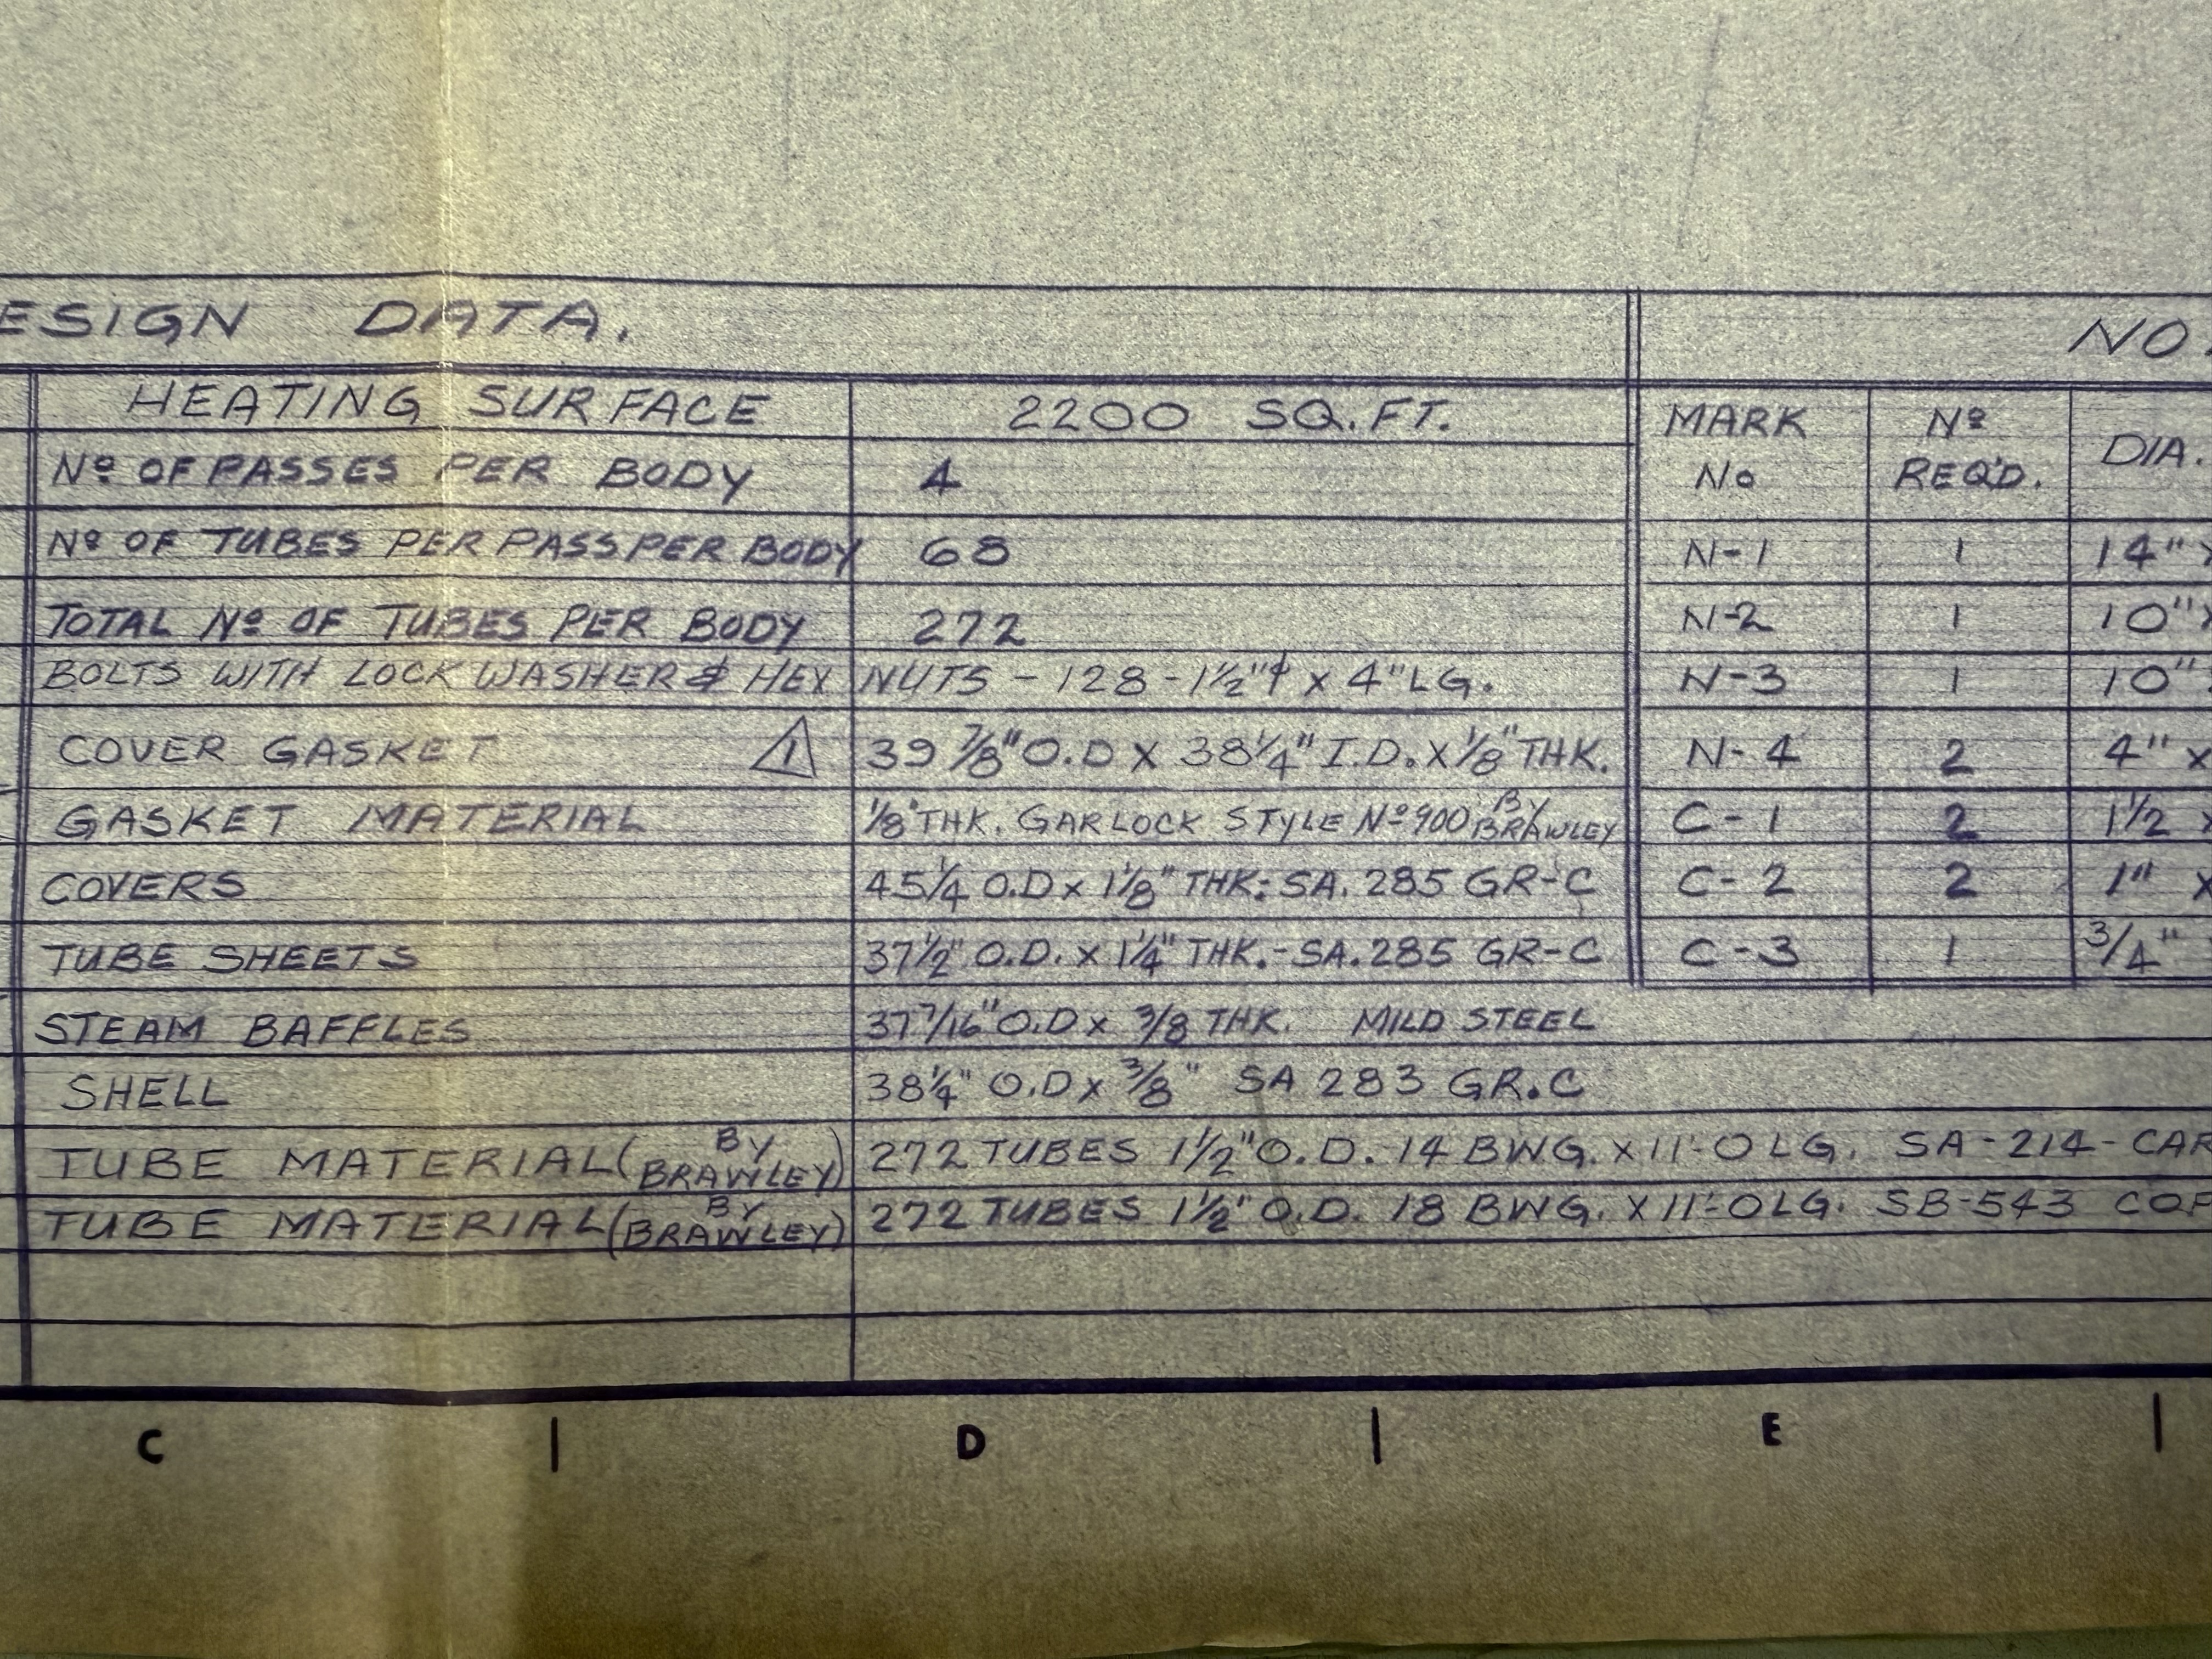 ESIGN DATA.
HEATING SURFACE 2200 SQ.FT.
Nº OF PASSES PER BODY 4
Nº OF TUBES PER PASS PER BODY 68
TOTAL Nº OF TUBES PER BODY 272
BOLTS WITH LOCK WASHER & HEX NUTS - 128 - 1½"φ x 4" LG.
COVER GASKET 1 39 7/8" O.D X 38¼" I.D. X 1/8" THK.
GASKET MATERIAL 1/8" THK. GARLOCK STYLE Nº 900 BY BRAWLEY
COVERS 45¼ O.D x 1 1/8" THK: SA. 285 GR-C
TUBE SHEETS 37½" O.D. x 1¼" THK.-SA. 285 GR-C
STEAM BAFFLES 37 7/16" O.D x 3/8 THK. MILD STEEL
SHELL 38¼" O.D x 3/8" SA 283 GR.C
TUBE MATERIAL (BY BRAWLEY) 272 TUBES 1½" O.D. 14 BWG. x 11'-0 LG. SA-214-CAR
TUBE MATERIAL (BY BRAWLEY) 272 TUBES 1½" O.D. 18 BWG. X 11'-0 LG. SB-543 COP
NO
MARK No Nº REQ'D. DIA.
N-1 1 14" x
N-2 1 10" x
N-3 1 10"
N-4 2 4" x
C-1 2 1½ x
C-2 2 1" x
C-3 1 3/4"
C D E